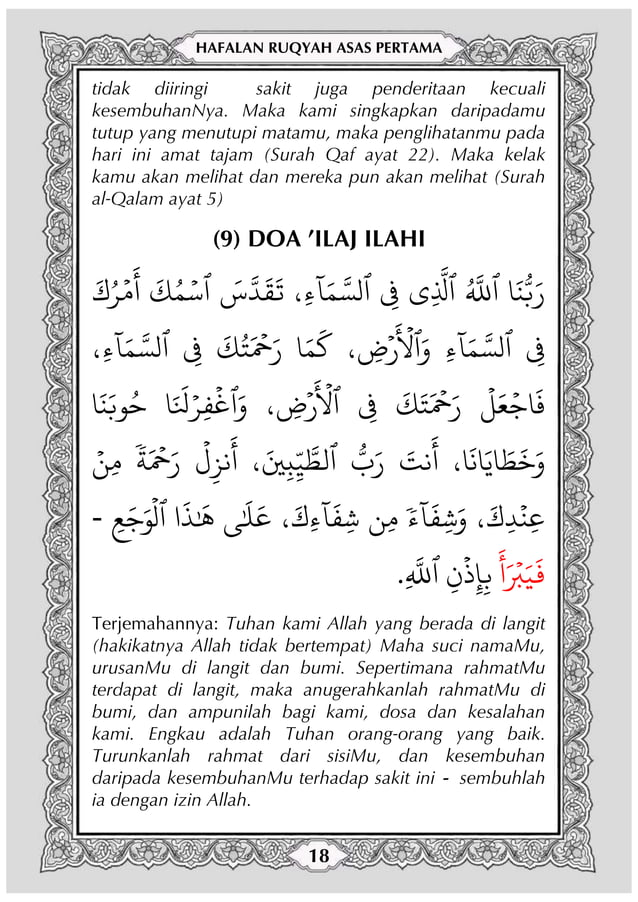 HAFALAN RUQYAH ASAS PERTAMA
tidak diiringi sakit juga penderitaan kecuali
kesembuhanNya. Maka kami singkapkan daripadamu
tutup yang menutupi matamu, maka penglihatanmu pada
hari ini amat tajam (Surah Qaf ayat 22). Maka kelak
kamu akan melihat dan mereka pun akan melihat (Surah
al-Qalam ayat 5)
(9) DOA ’ILAJ ILAHI
رَبُّنَا ٱللَّهُ ٱلَّذِى فِى ٱلسَّمَآءِ، تَقَدَّسَ ٱسْمُكَ أَمْرُكَ
فِى ٱلسَّمَآءِ وَٱلْأَرْضِ، كَمَا رَحْمَتُكَ فِى ٱلسَّمَآءِ،
فَاجْعَلْ رَحْمَتَكَ فِى ٱلْأَرْضِ، وَٱغْفِرْلَنَا حُوبَنَا
وَخَطَايَانَا، أَنتَ رَبُّ ٱلطَّيِّبِينَ، أَنزِلْ رَحْمَةً مِنْ
عِنْدِكَ، وَشِفَآءً مِن شِفَآءِكَ، عَلَىٰ هَـٰذَا ٱلْوَجَعِ -
فَيَبْرَأَ بِإِذْنِ ٱللَّهِ.
Terjemahannya: Tuhan kami Allah yang berada di langit
(hakikatnya Allah tidak bertempat) Maha suci namaMu,
urusanMu di langit dan bumi. Sepertimana rahmatMu
terdapat di langit, maka anugerahkanlah rahmatMu di
bumi, dan ampunilah bagi kami, dosa dan kesalahan
kami. Engkau adalah Tuhan orang-orang yang baik.
Turunkanlah rahmat dari sisiMu, dan kesembuhan
daripada kesembuhanMu terhadap sakit ini - sembuhlah
ia dengan izin Allah.
18